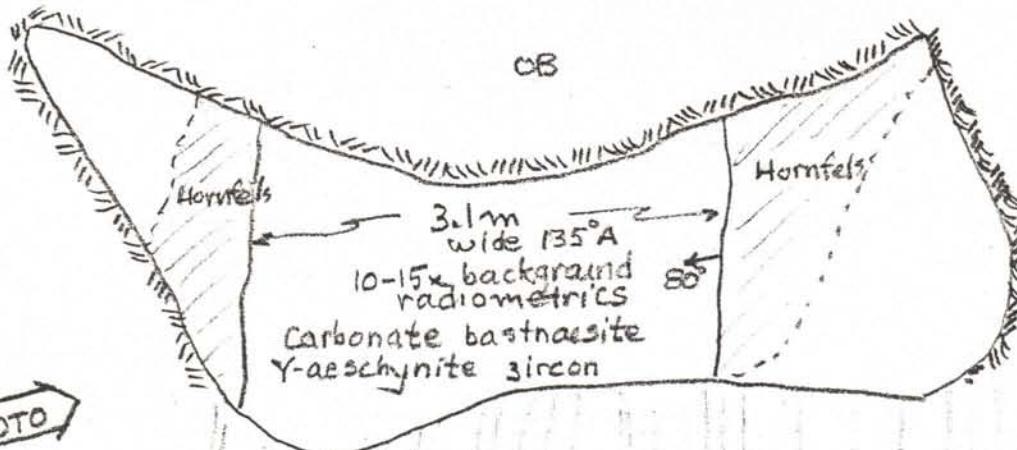 OB
Hornfels
Hornfels
3.1m
wide 135°A
10-15x background
radiometrics
80°
Carbonate bastnaesite
Y-aeschynite zircon
OTO